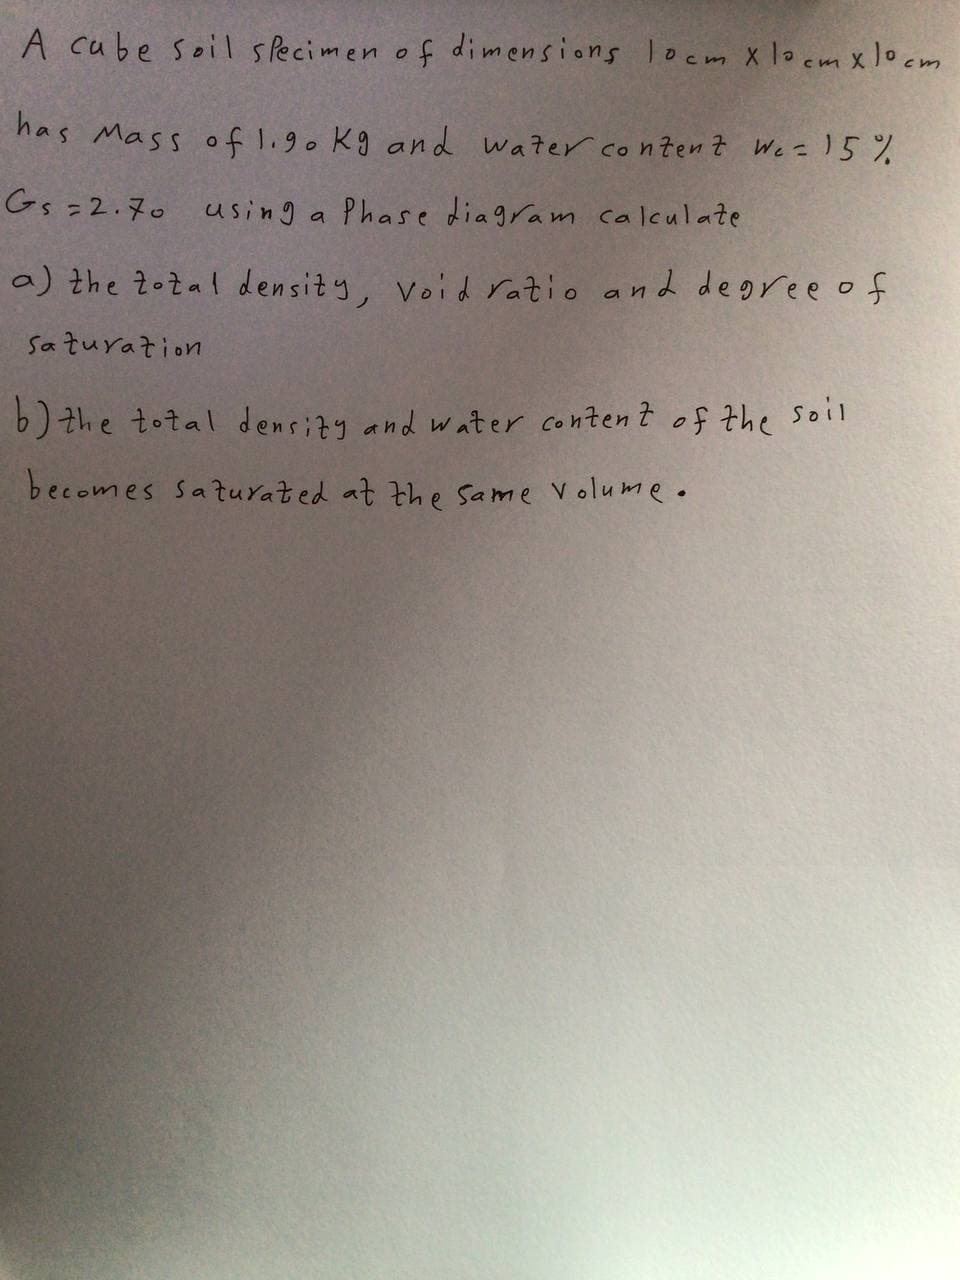 A cube soil specimen of dimensions 10cm x 10cm x 10cm
has Mass of 1.90 Kg and water content Wc = 15 %
Gs = 2.70 using a Phase diagram calculate
a) the total density, void ratio and degree of
saturation
b) the total density and water content of the soil
becomes saturated at the same volume.